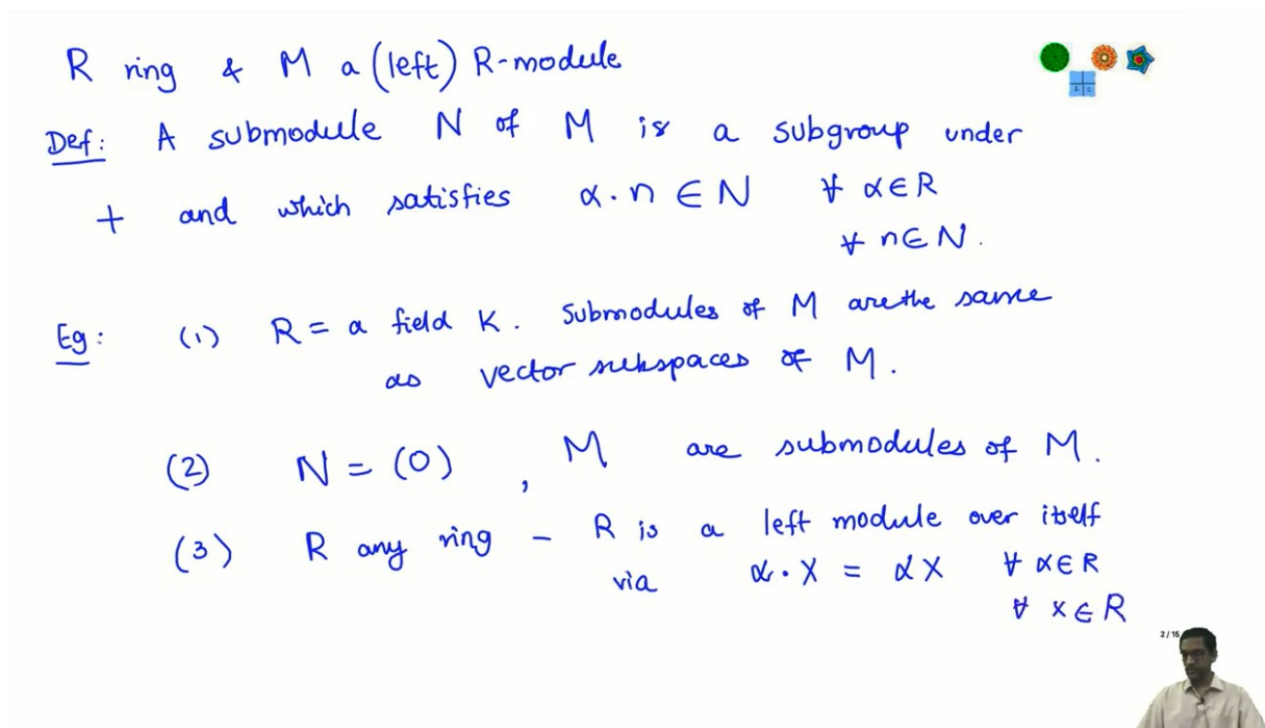 R ring & M a (left) R-module
Def: A submodule N of M is a subgroup under
+ and which satisfies α·n ∈ N ∀ α∈R
∀ n∈N.
Eg: (1) R = a field K. Submodules of M are the same
as vector subspaces of M.
(2) N = (0), M are submodules of M.
(3) R any ring – R is a left module over itself
via α·x = αx ∀ α∈R
∀ x∈R
2/15